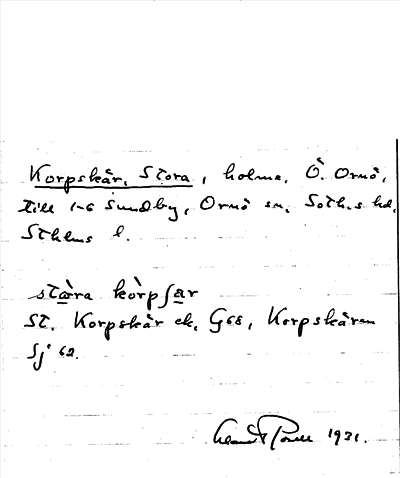 Korpskär, Stora, holme, Ö. Ornö,
till 1-6 Sundby, Ornö sn, Soth.s hd,
Sthlms l.
stæ̀ra kòrpʃær
St. Korpskär ek. G68, Korpskären
Sj 62.
1931.